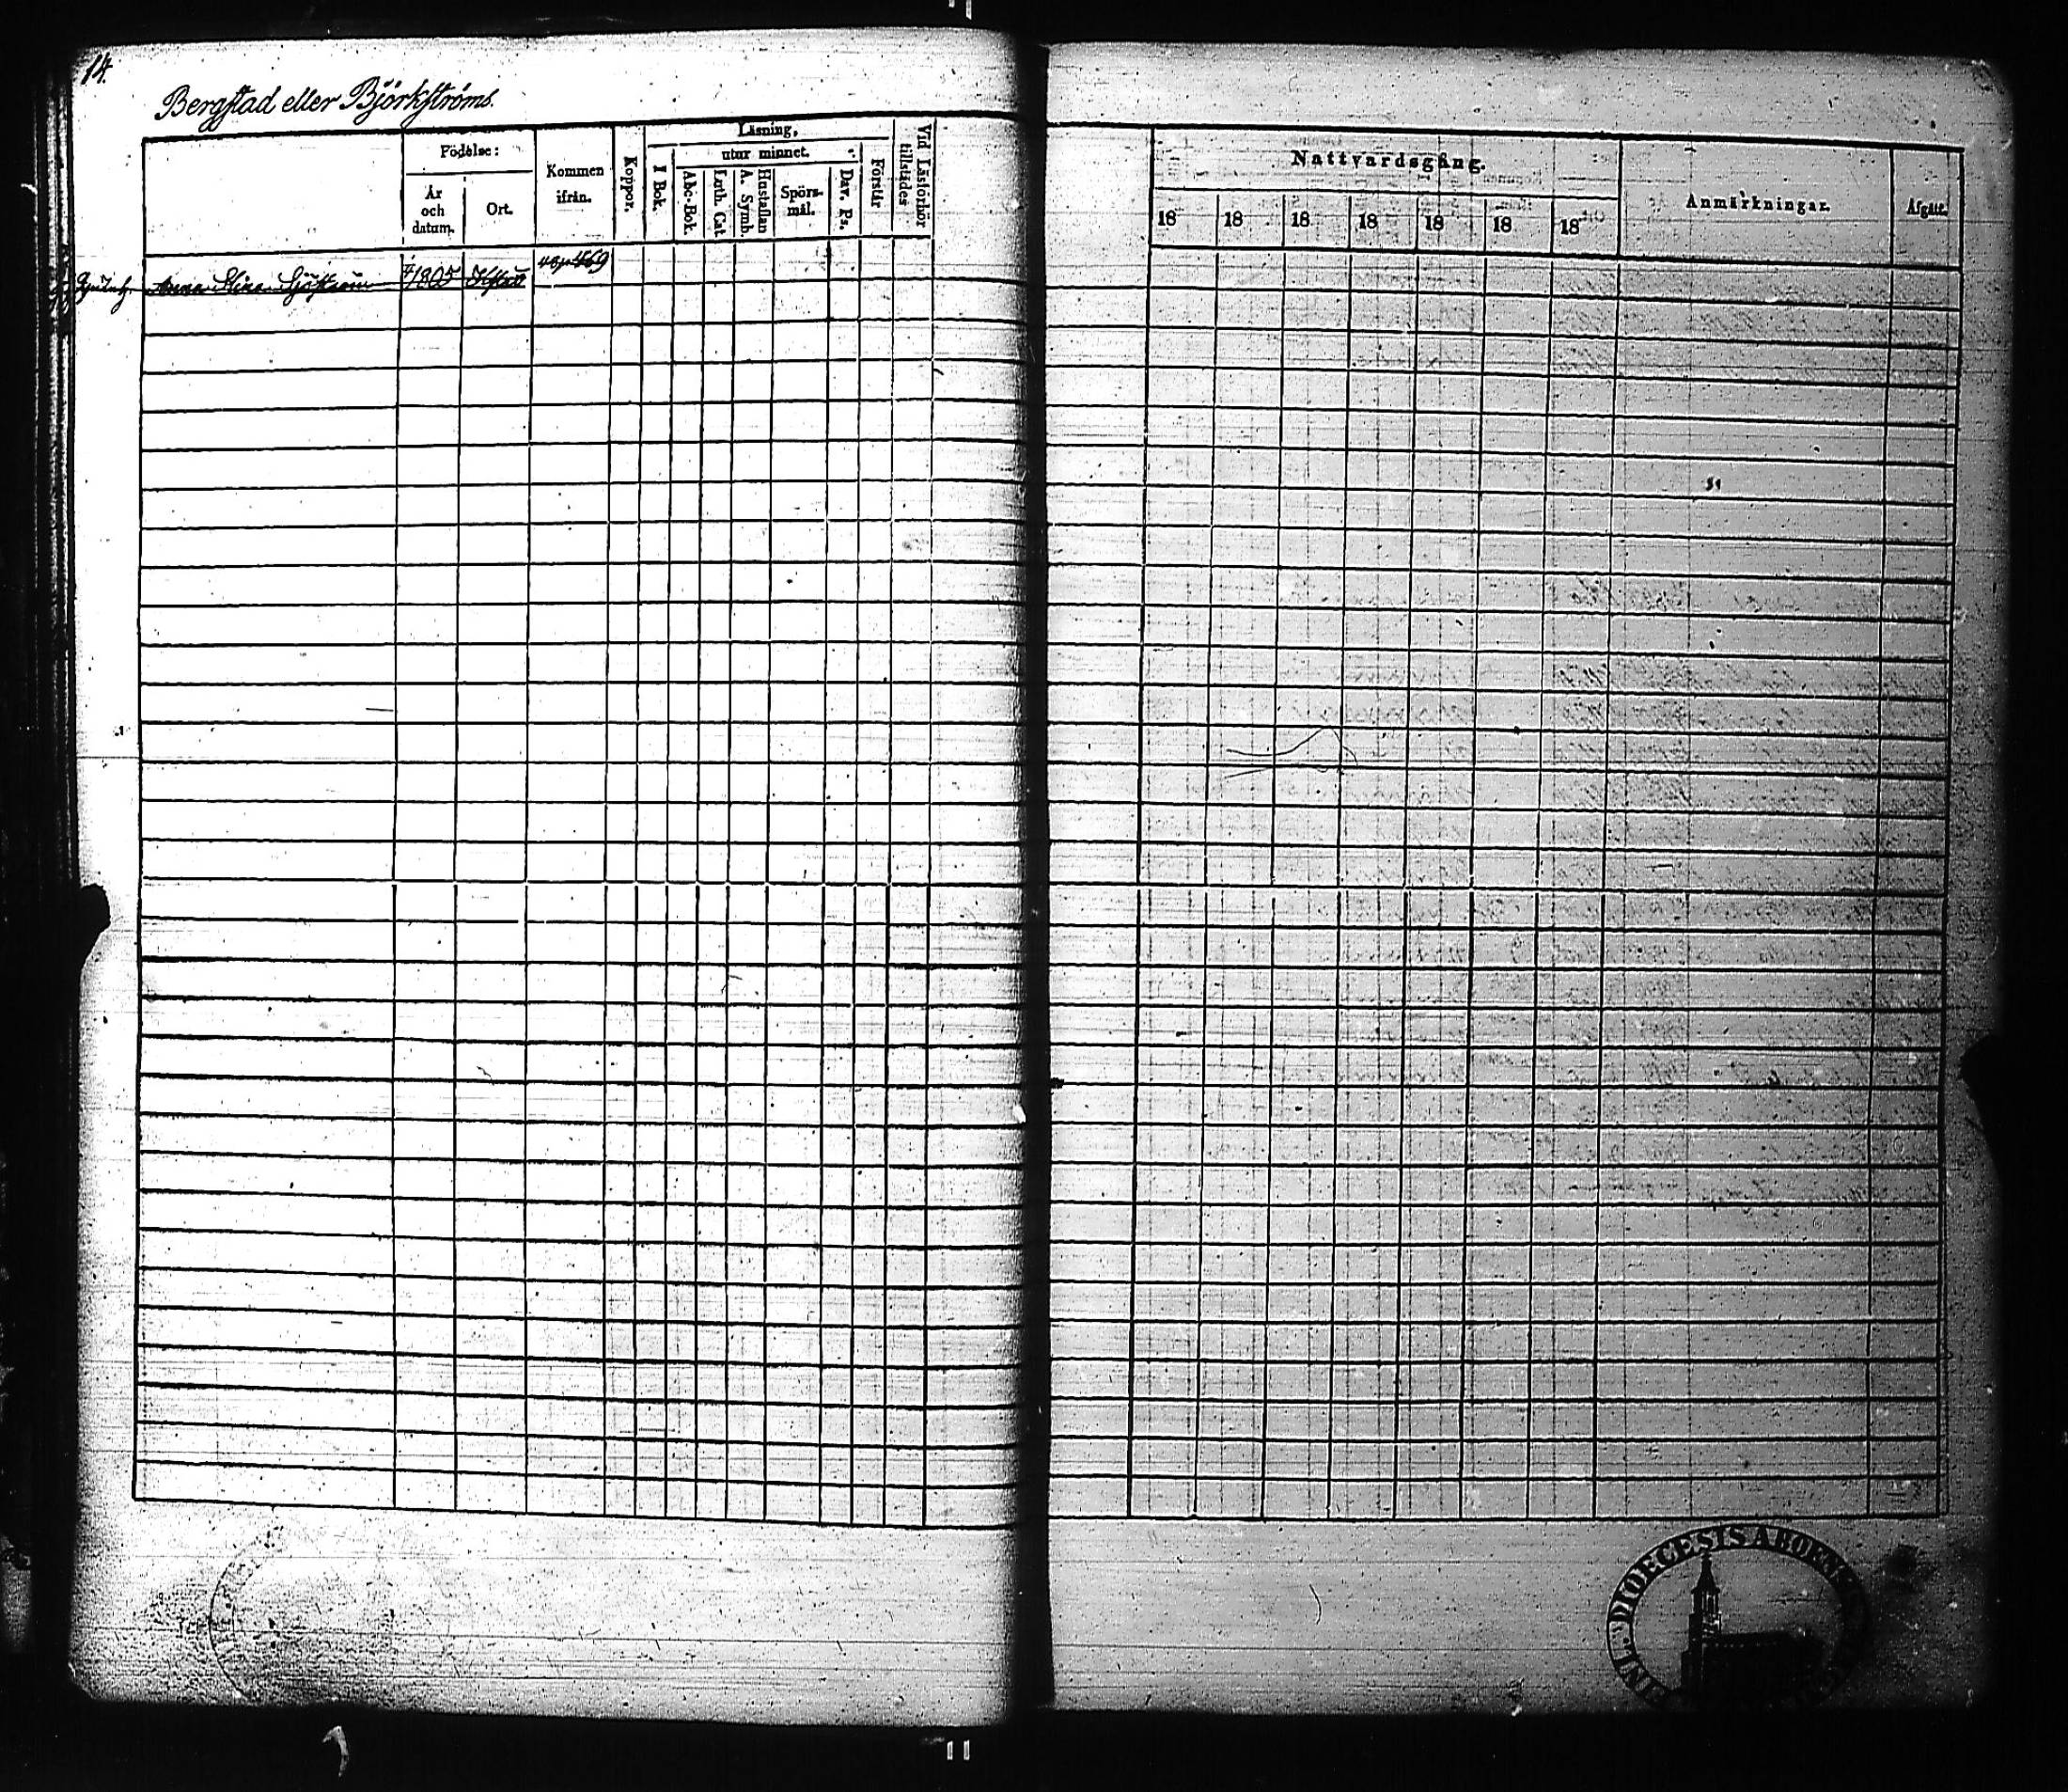 14.
Bergstad eller Björkströms.
Födelse:
År och datum.
Ort.
Kommen ifrån.
Koppor.
Läsning,
I Bok.
utur minnet.
Abc-Bok.
Luth. Cat.
Hustaflan A. Symb.
Spörs-mål.
Dav. Ps.
Förstår
Vid Läsförhör tillstädes
Nattvardsgång.
18 18 18 18 18 18 18
Anmärkningar.
Afgått.
Anna Sjöström 1805
DIOECESIS ABOENS